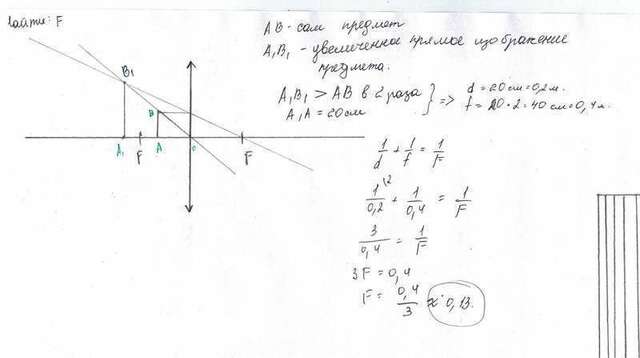 Найти: F
AB - сам предмет
A₁B₁ - увеличенное прямое изображение
предмета.
A₁B₁ > AB в 2 раза
A₁A = 20см
} => d = 20см = 0,2м.
f = 20·2 = 40см = 0,4м.
B₁
B
A₁
F
A
O
F
1/d + 1/f = 1/F
1\2/0,2 + 1/0,4 = 1/F
3/0,4 = 1/F
3F = 0,4
F = 0,4/3 ≈ 0,13.